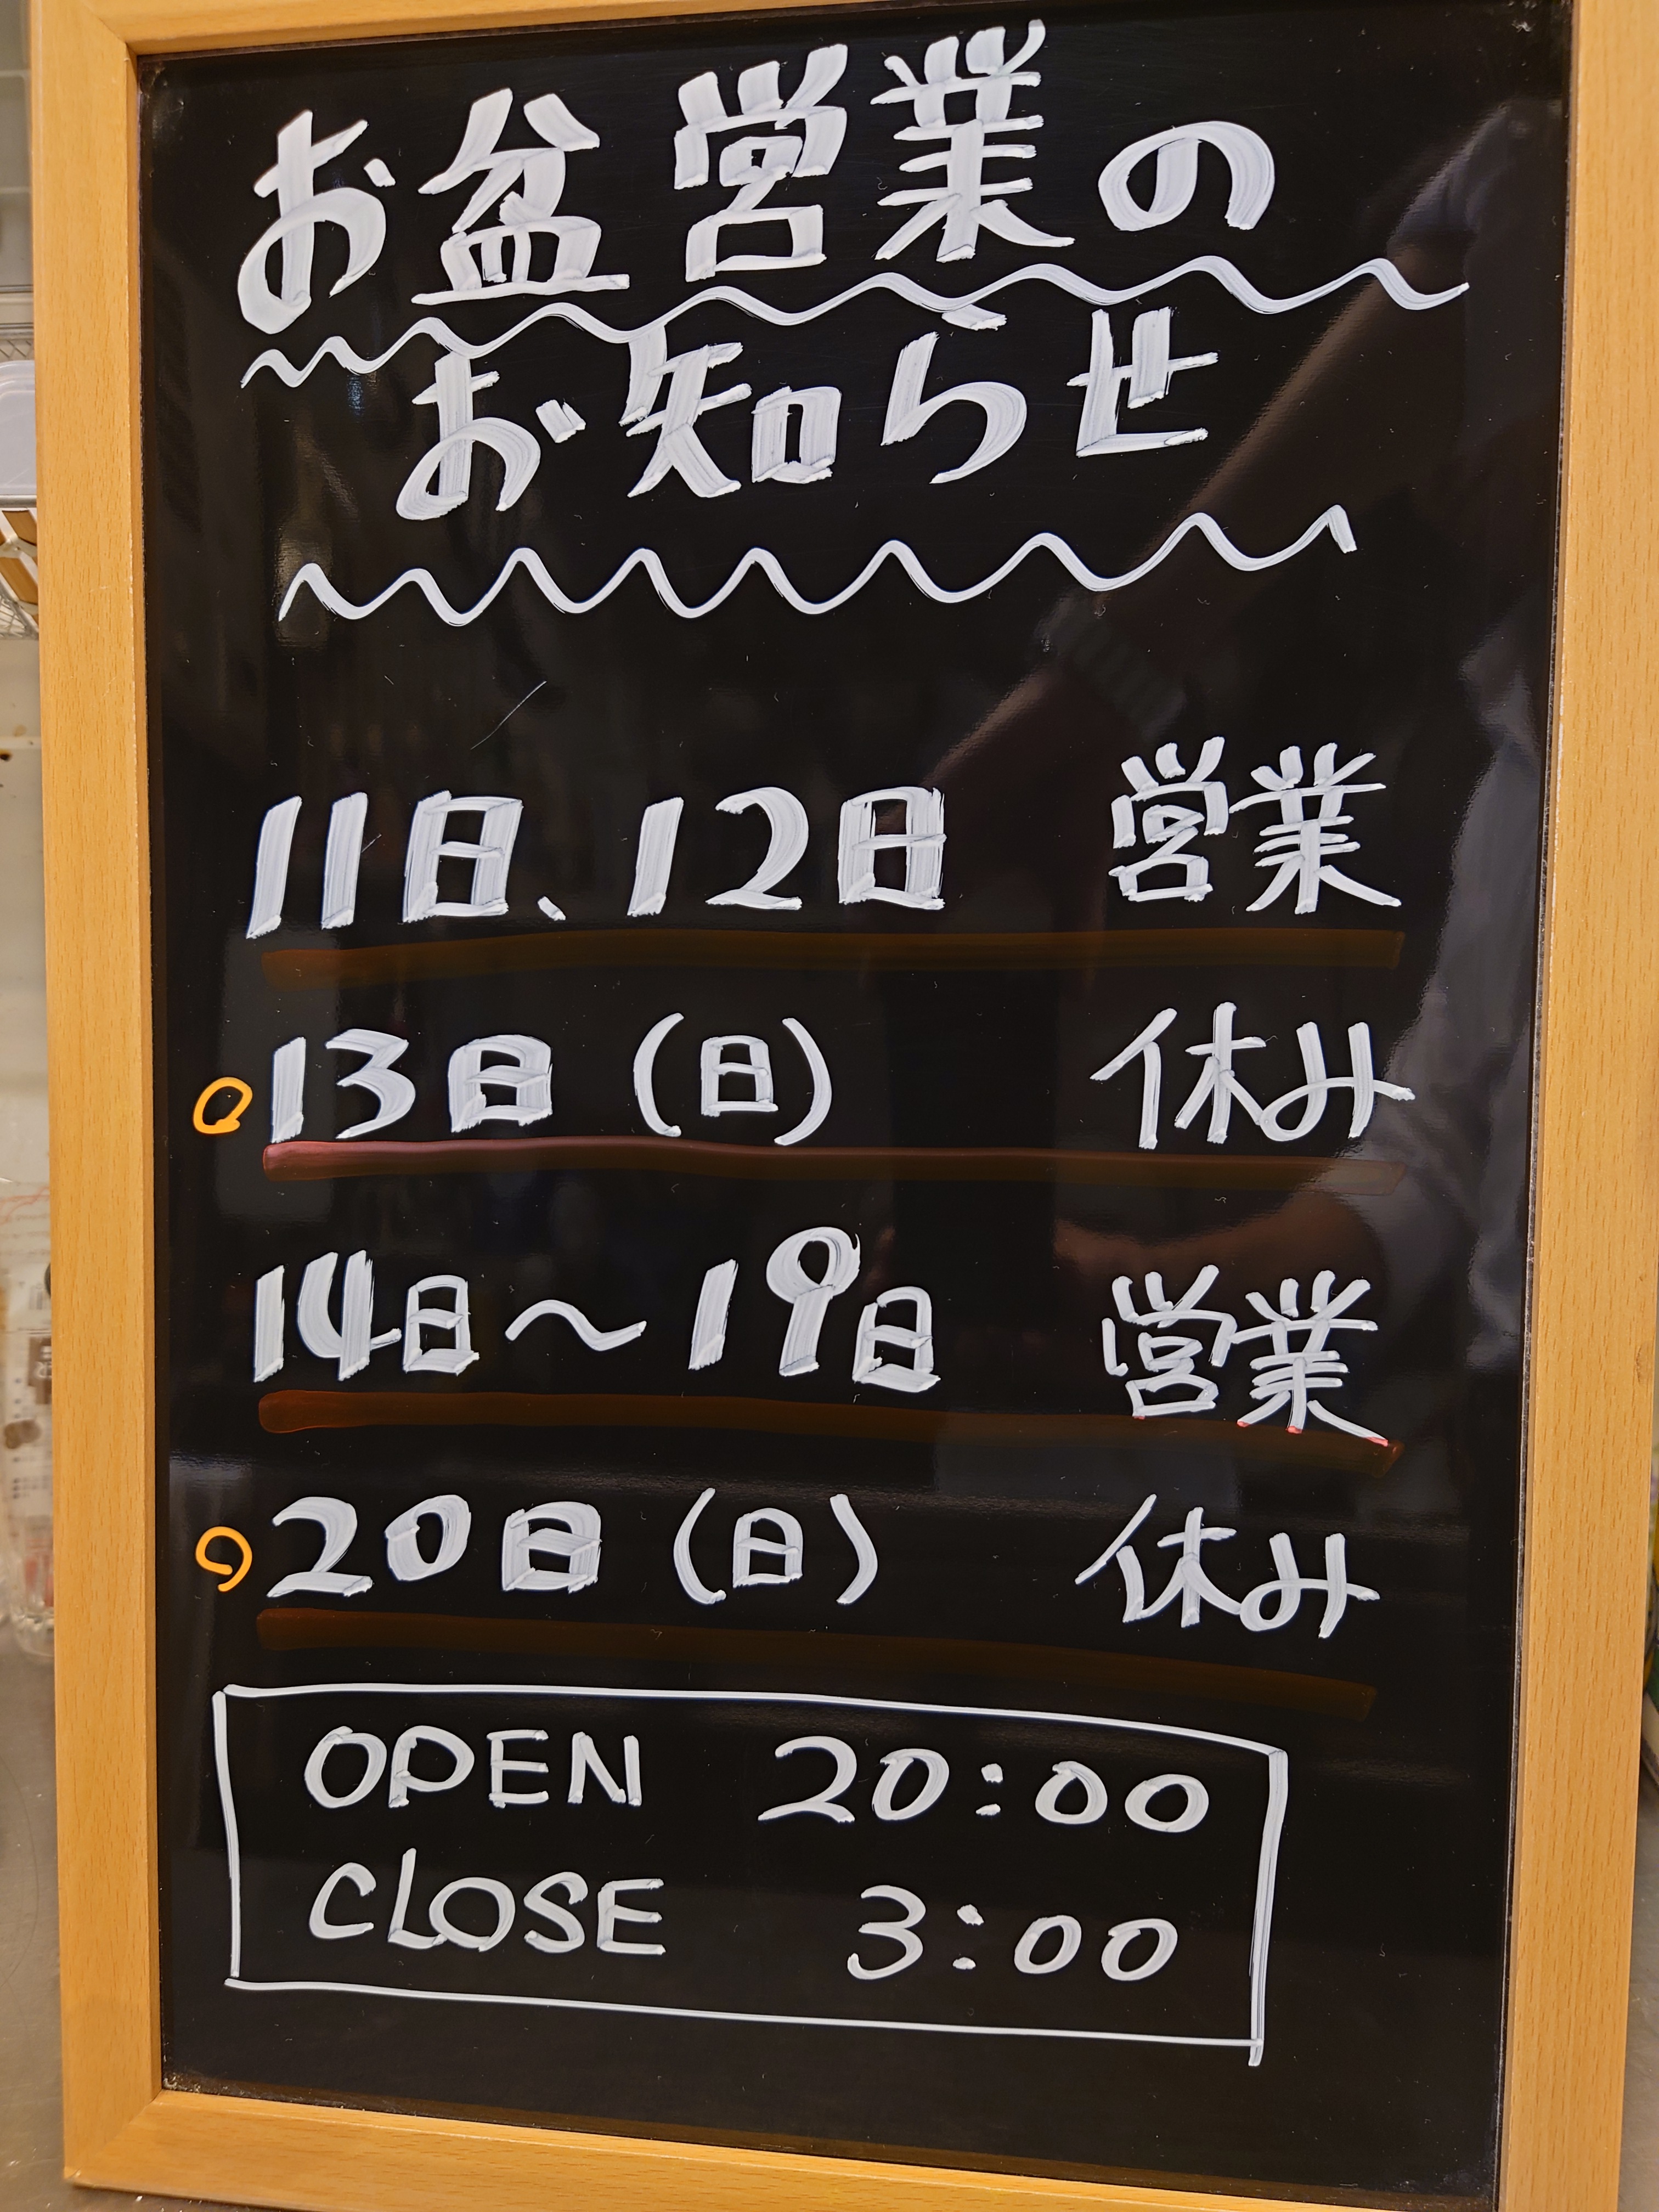 お盆営業の
お知らせ
11日、12日 営業
13日(日) 休み
14日～19日 営業
20日(日) 休み
OPEN 20:00
CLOSE 3:00